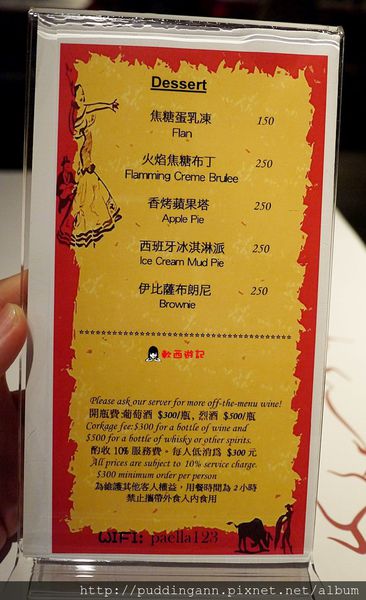 Dessert
焦糖蛋乳凍 150
Flan
火焰焦糖布丁 250
Flamming Creme Brulee
香烤蘋果塔 250
Apple Pie
西班牙冰淇淋派 250
Ice Cream Mud Pie
伊比薩布朗尼 250
Brownie
****************************************
軟西遊記
Please ask our server for more off-the-menu wine!
開瓶費:葡萄酒 $300/瓶, 烈酒 $500/瓶
Corkage fee:$300 for a bottle of wine and
$500 for a bottle of whisky or other spirits.
酌收 10% 服務費。每人低消為 $300元
All prices are subject to 10% service charge.
$300 minimum order per person
為維護其他客人權益，用餐時間為 2 小時
禁止攜帶外食人內食用
WIFI: paella123
http://puddingann.pixnet.net/album